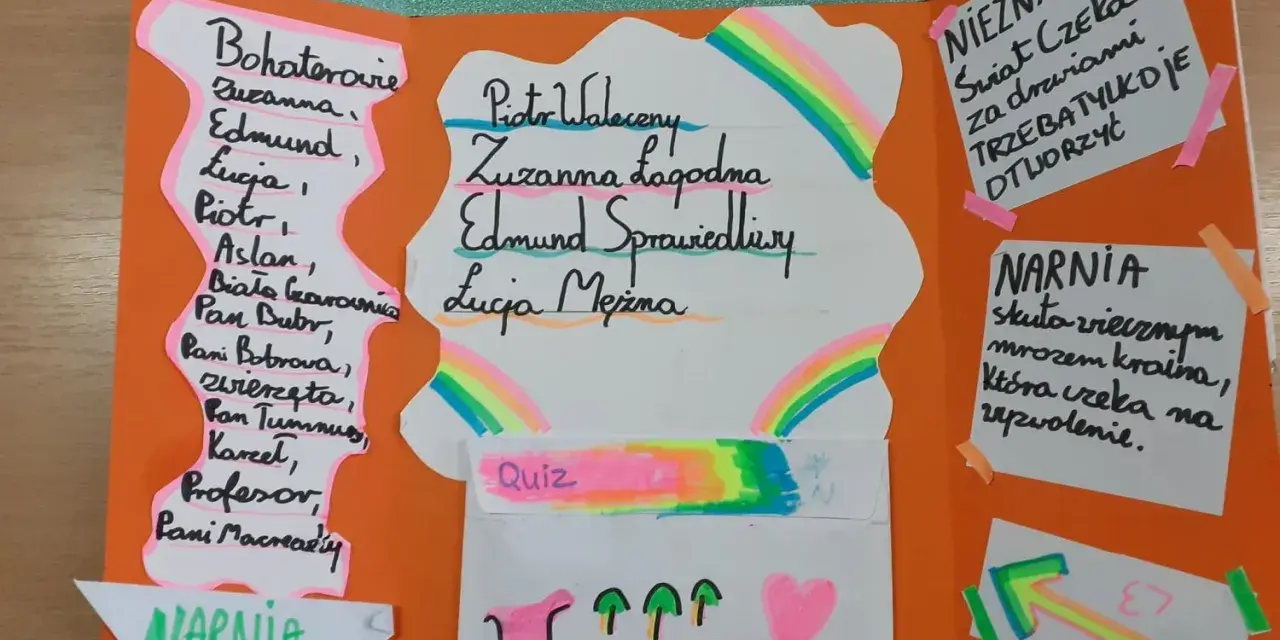 Bohaterowie
Zuzanna,
Edmund,
Łucja,
Piotr,
Aslan,
Biała Czarownica
Pan Bubr,
Pani Bobrowa,
zwierzęta,
Pan Tumnus,
Karzeł,
Profesor,
Pani Macready
NARNIA
Piotr Waleczny
Zuzanna Łagodna
Edmund Sprawiedliwy
Łucja Mężna
Quiz
N
Świat Czeka
za drzwiami
TRZEBA TYLKO JE
OTWORZYĆ
NARNIA
skuta wiecznym
mrozem kraina,
która czeka na
wyzwolenie.